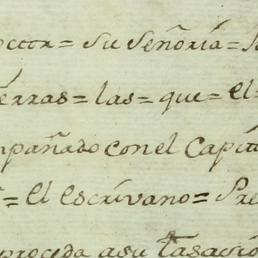 octtor = Su Señoría =
erras = las = que = el =
mpañado con el Capit
= El Escrivano = Pre
proceda a su tasació